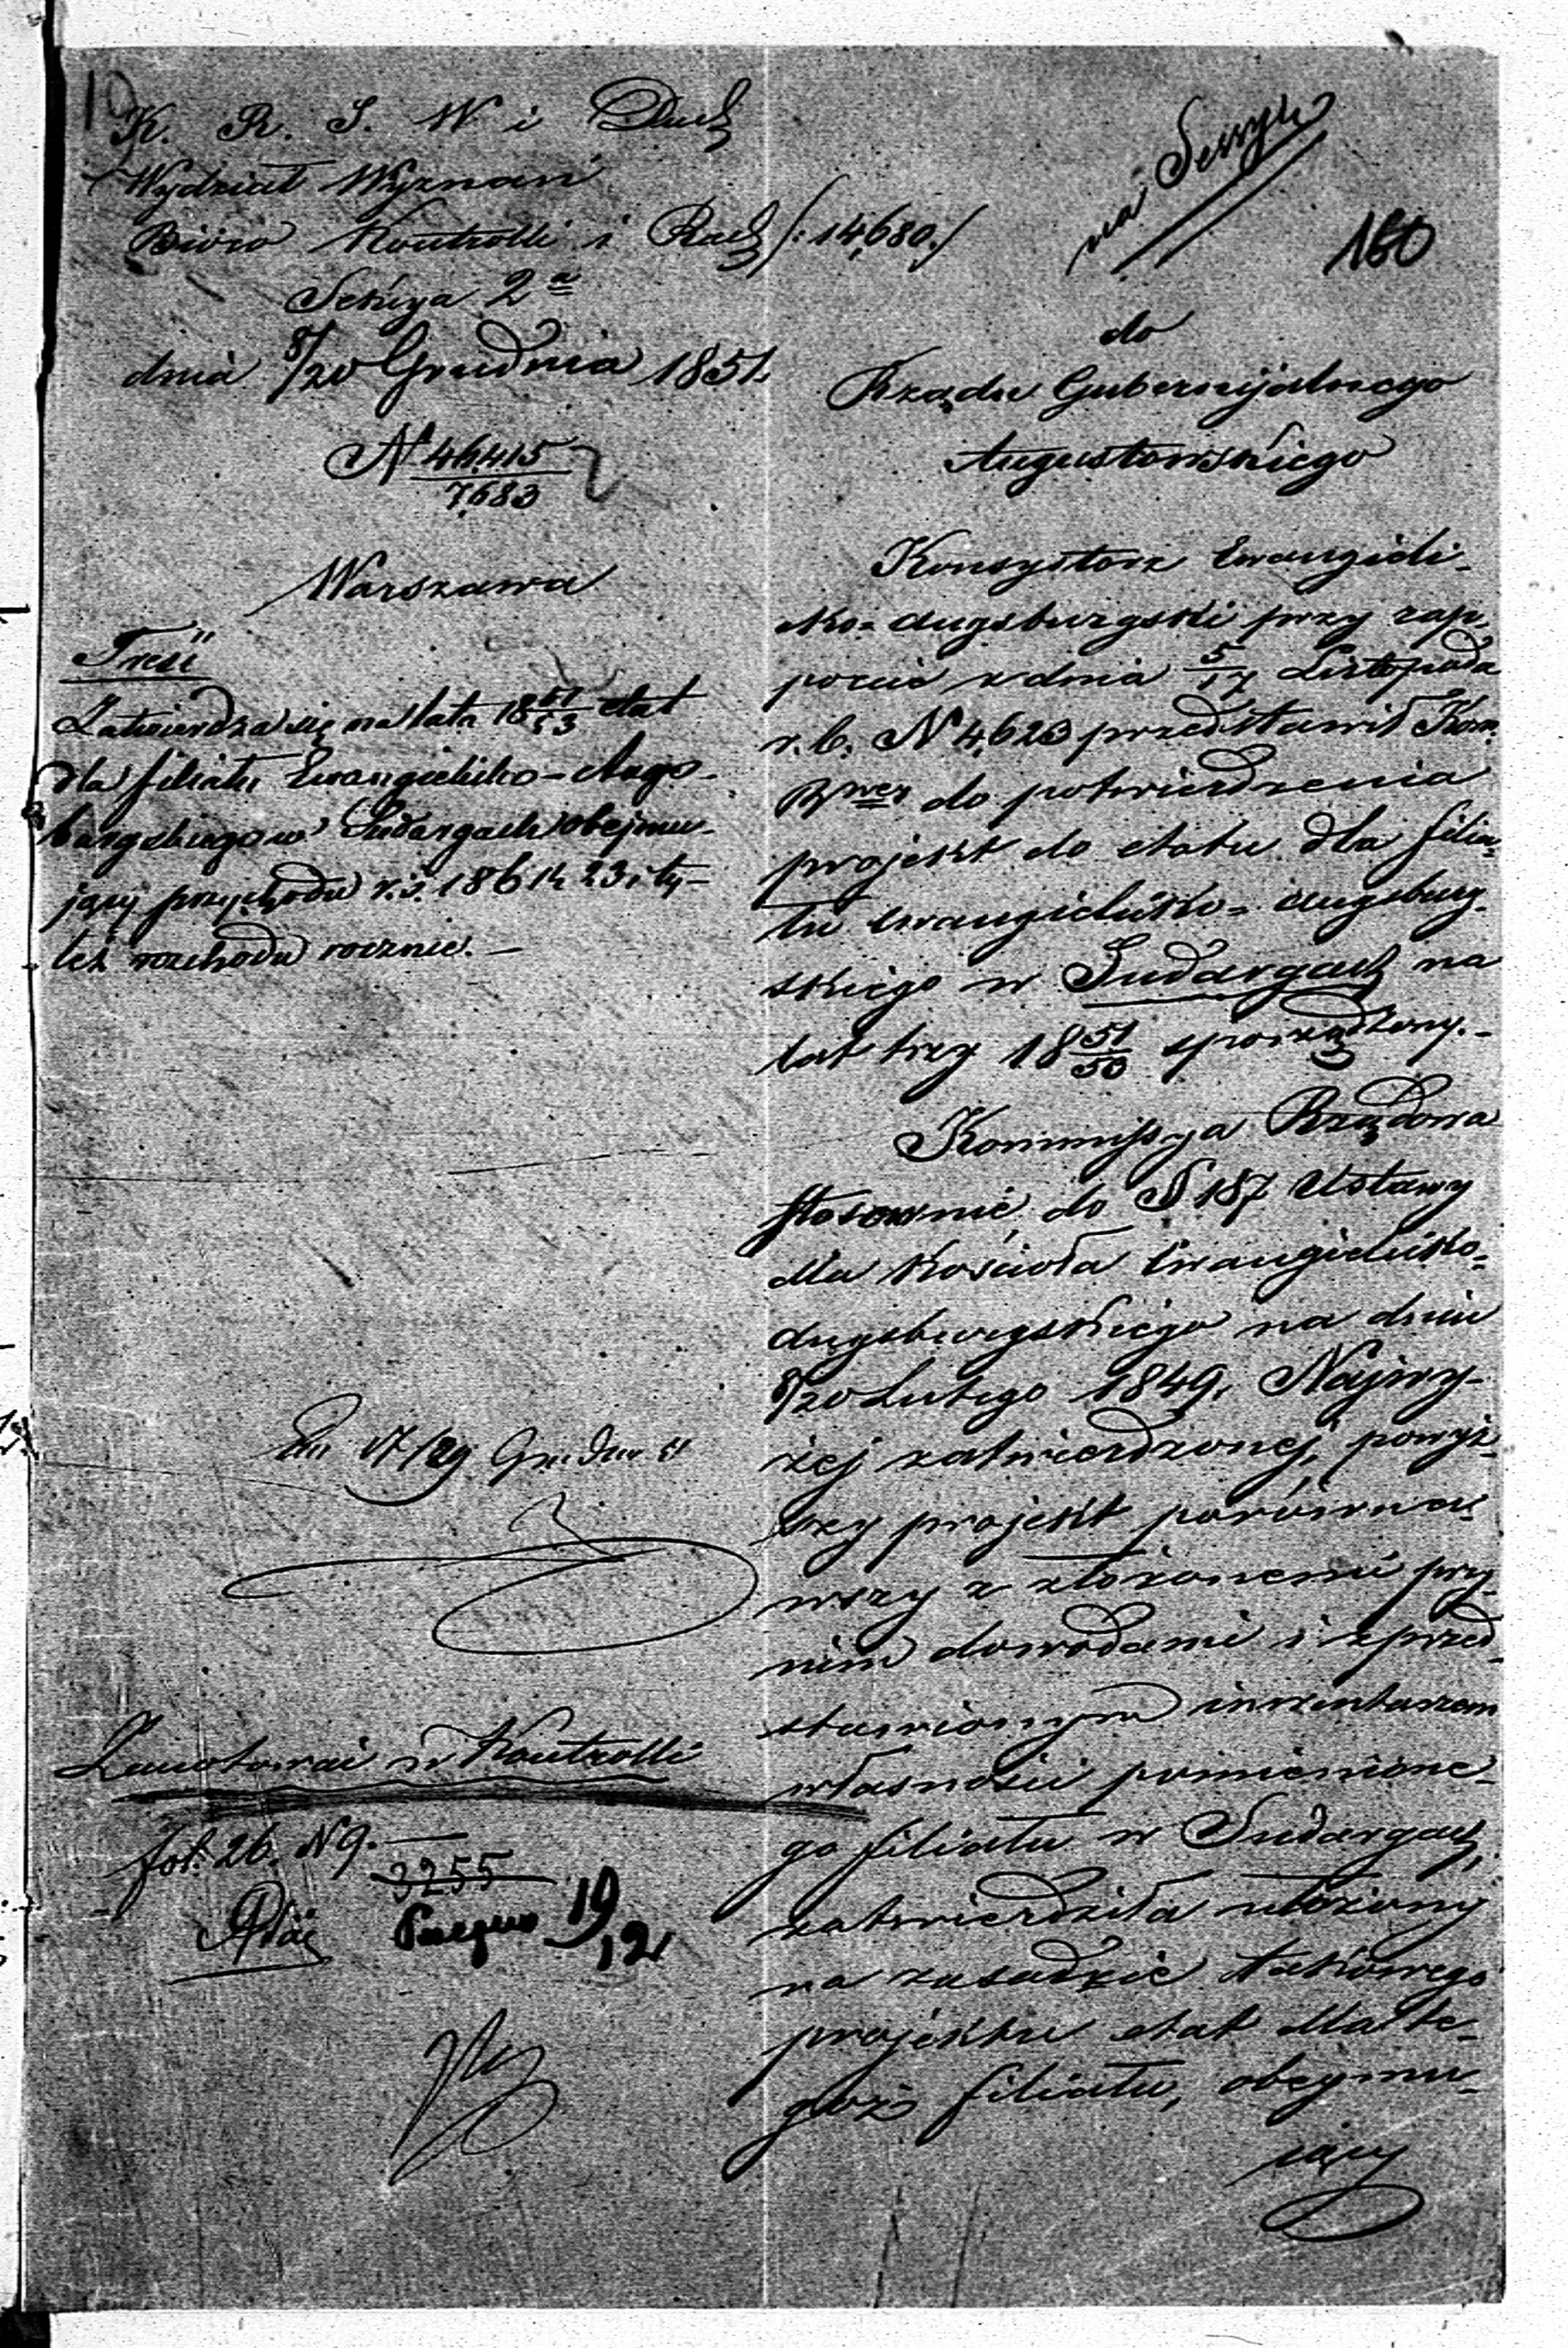 K. R. S. W i Duch
Wydział Wyznań
Bióro Kontrolli i Rach /: 14,680./
Sekcya 2a
dnia 8/20 Grudnia 1851.
N 46,415
7,683
Warszawa
Treść
Zatwierdza się na lata 18 51/53 etat
dla filiału Ewangielicko-Augs-
burgskiego w Sudargach obejmu-
jący przychodu r.s. 186 k 23 i ty-
leż rozchodu rocznie. —
17/29 Grudnia 51
Zanotować w Kontrolli
fol. 26. N 9.
3255
19/12
na Sessyi
160
do
Rządu Gubernijalnego
Augustowskiego
Konsystorz Ewangieli-
cko-Augsburgski przy rap-
porcie z dnia 5/17 Listopada
r. b. N 4,623 przedstawił Kom.
Rwej do potwierdzenia
projekt do etatu dla filia-
łu ewangielicko-augsburg-
skiego w Sudargach na
lat trzy 18 51/53 sporządzony. -
Kommissya Rządowa
stosownie do § 187 Ustawy
dla Kościoła Ewangielicko-
Augsburgskiego na dniu
8/20 Lutego 1849, Najwy-
żej zatwierdzonej, powyż-
szy projekt porówna-
wszy z złożonemi przy
nim dowodami i z przed-
stawionym inwentarzem
własności pomienione-
go filiału w Sudargach,
zatwierdziła ułożony
na zasadzie takowego
projektu etat dla te-
goż filiału, obejmu-
jący